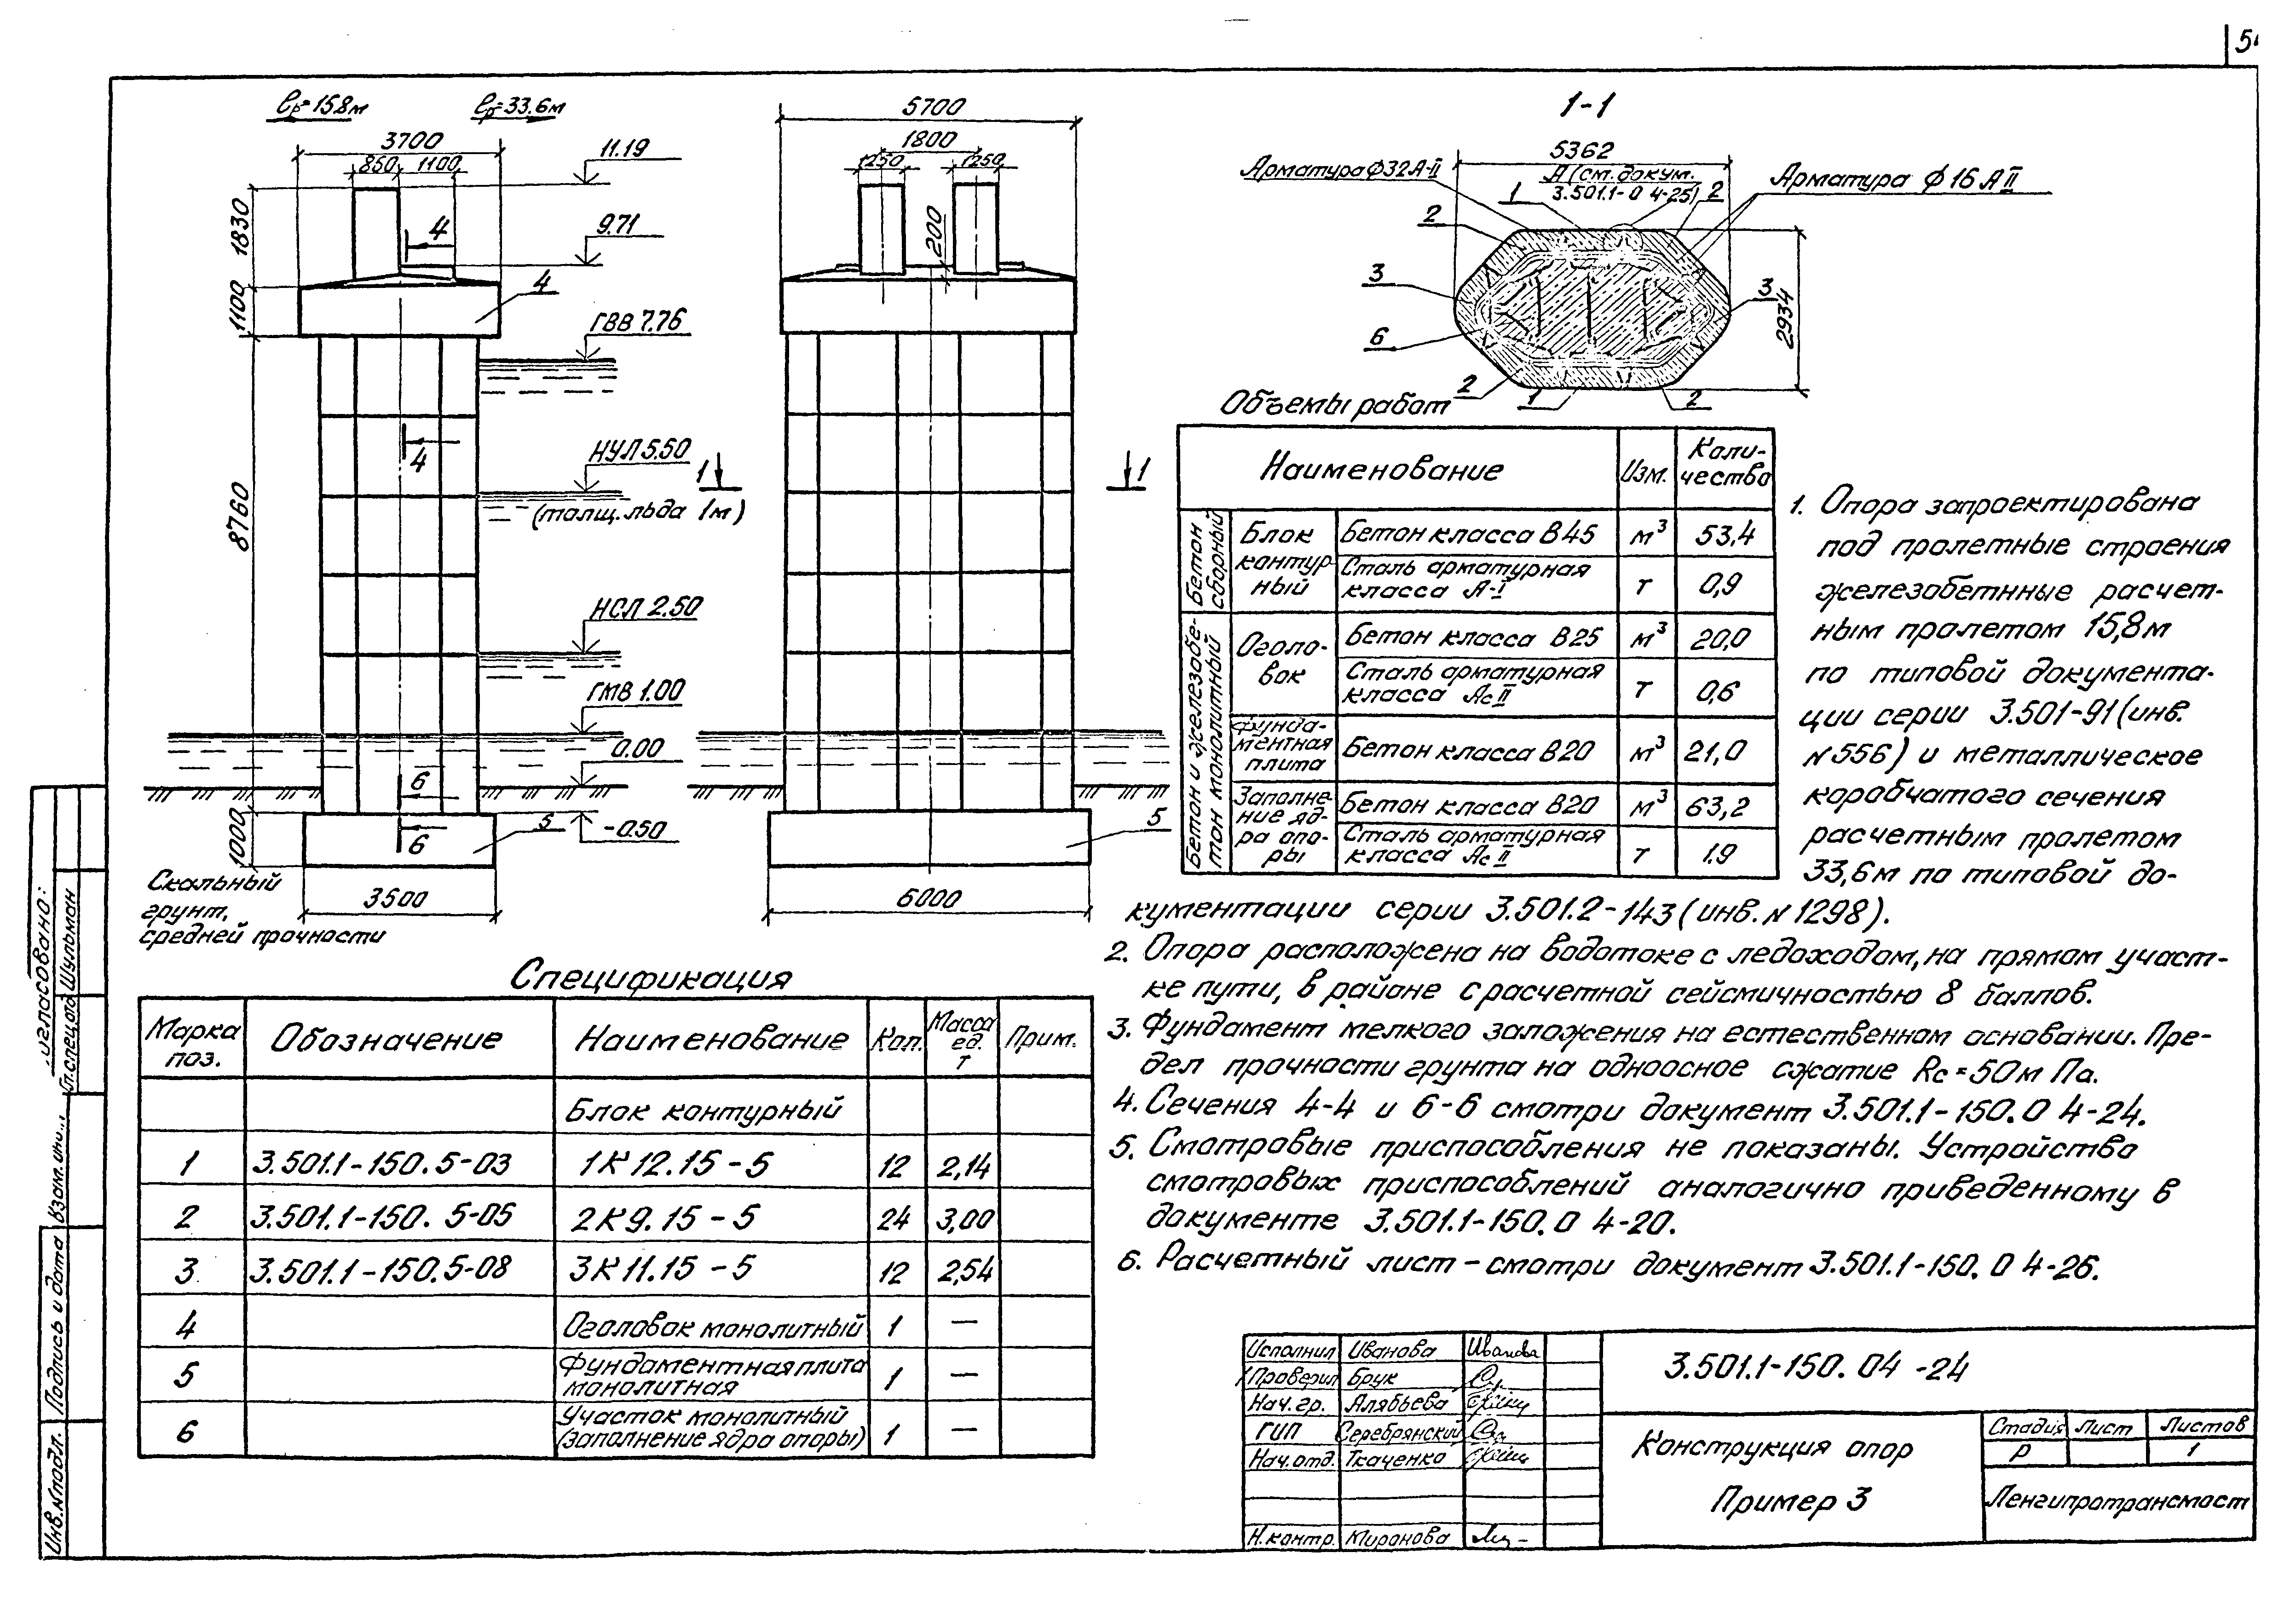 5
ℓр=15.8м
ℓр=33.6м
3700
850
1100
11.19
9.71
1830
1100
8760
1000
4
4
ГВВ 7.76
4
НУЛ 5.50
(толщ. льда 1м)
НСЛ 2.50
ГМВ 1.00
0.00
6
6
5
-0.50
3500
Скальный
грунт,
средней прочности
5700
1800
1250
1250
200
1
1
5
6000
1-1
5362
А (см. докум.
3.501.1-0 4-25)
Арматура ф32А-II
Арматура ф 16 АII
1
2
2
3
3
6
2
1
2
2934
Объемы работ
Наименование
Изм.
Коли-
чество
Бетон
сборный
Блок
контур-
ный
Бетон класса В45
м³
53,4
Сталь арматурная
класса А-I
т
0,9
Бетон и железобе-
тон монолитный
Оголо-
вок
Бетон класса В25
м³
20,0
Сталь арматурная
класса АсII
т
0,6
Фунда-
ментная
плита
Бетон класса В20
м³
21,0
Заполне-
ние яд-
ра опо-
ры
Бетон класса В20
м³
63,2
Сталь арматурная
класса АсII
т
1.9
1. Опора запроектирована
под пролетные строения
железобетнные расчет-
ным пролетом 15,8м
по типовой документа-
ции серии 3.501-91 (инв.
N556) и металлическое
коробчатого сечения
расчетным пролетом
33,6м по типовой до-
кументации серии 3.501.2-143 (инв. N1298).
2. Опора расположена на водотоке с ледоходом, на прямом участ-
ке пути, в районе с расчетной сейсмичностью 8 баллов.
3. Фундамент мелкого заложения на естественном основании. Пре-
дел прочности грунта на одноосное сжатие Rc=50м Па.
4. Сечения 4-4 и 6-6 смотри документ 3.501.1-150.0 4-24.
5. Смотровые приспособления не показаны. Устройство
смотровых приспособлений аналогично приведенному в
документе 3.501.1-150.0 4-20.
6. Расчетный лист - смотри документ 3.501.1-150.0 4-26.
Спецификация
Марка
поз.
Обозначение
Наименование
Кол.
Масса
ед.
т
Прим.
Блок контурный
1 3.501.1-150.5-03 1К12.15-5 12 2,14
2 3.501.1-150.5-05 2К9.15-5 24 3,00
3 3.501.1-150.5-08 3К11.15-5 12 2,54
4 Оголовок монолитный 1 —
5 Фундаментная плита
монолитная 1 —
6 Участок монолитный
(заполнение ядра опоры) 1 —
Исполнил Иванова Иванова
Проверил Брук
Нач.гр. Алябьева
ГИП Серебрянский
Нач.отд. Ткаченко
Н.контр. Миронова
3.501.1-150.04-24
Конструкция опор
Пример 3
Стадия Лист Листов
Р 1
Ленгипротрансмост
Гл.спец.отд. Шульман
Взам.инв.
Подпись и дата
Инв.N подл.